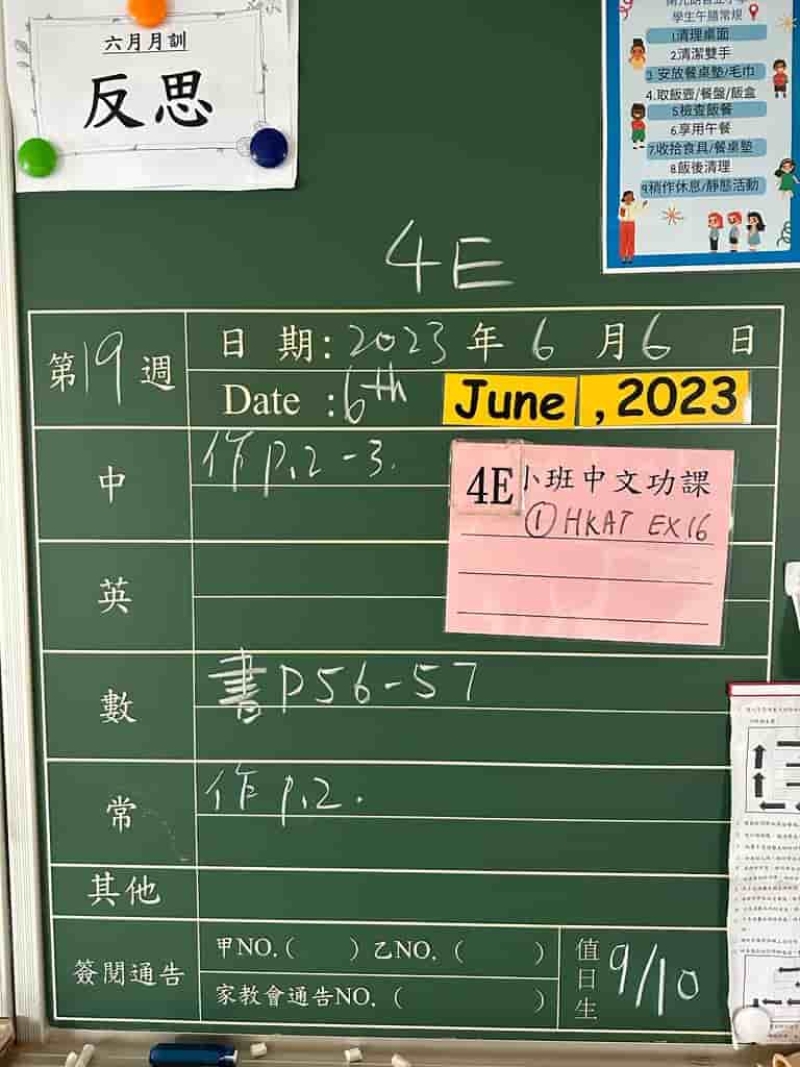 六月月訓
反思
學生午膳常規
1.清理桌面
2.清潔雙手
3.安放餐桌墊/毛巾
4.取飯壺/餐盤/飯盒
5.檢查飯餐
6.享用午餐
7.收拾食具/餐桌墊
8.飯後清理
9.稍作休息/靜態活動
4E
第19週
日 期: 2023 年 6 月 6 日
Date : 6th June , 2023
中 作 P.2-3.
4E小班中文功課
①HKAT EX16
英
數 書 P56-57
常 作 P.2.
其他
簽閱通告
甲NO.( ) 乙NO.( )
家教會通告NO.( )
值日生 9/10